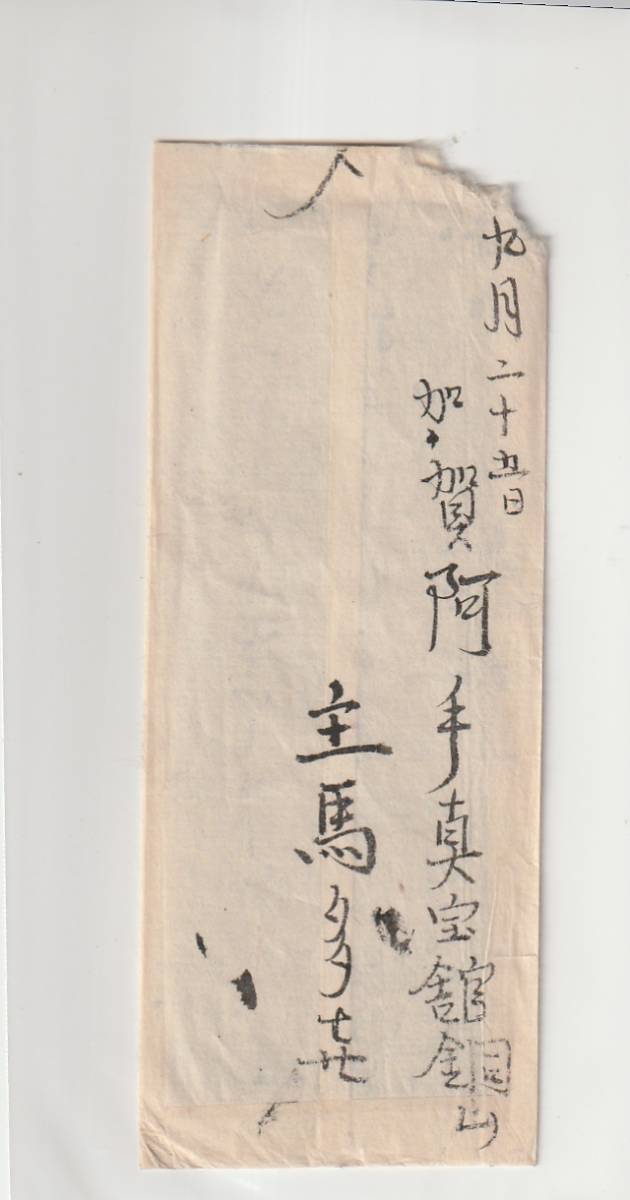 九月二十五日
加賀阿手真宝舘銅山
主馬多㐂